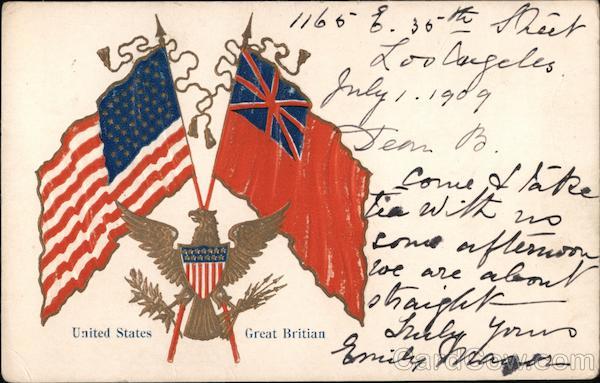 1165 E. 35th Street
Los Angeles
July 1. 1909
Dear B.
Come & take
tea with us
some afternoon
we are about
straight
Truly Yours
Emily
United States
Great Britian
CardCow.com